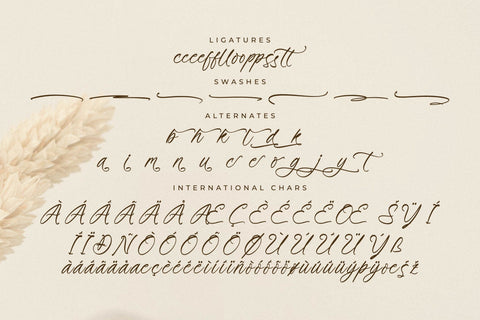 LIGATURES
ccceffllooppsstt
SWASHES
ALTERNATES
b h k t d k
a i m n u v r o g j y t
INTERNATIONAL CHARS
ÀÁÂÃÄÅÆÇÈÉÊËŒŠŸÍ
ÌÏÐÑÒÓÔÕÖØÙÚÛÜÝß
àáâãäåæçèéêëìíîïñòóôõöøùúûüýþÿœšž